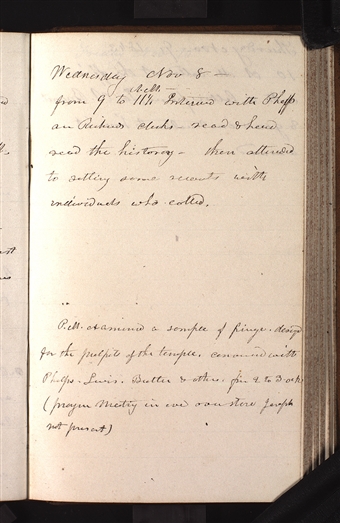 Wednesday Nov 8 —
A.M.
from 9 to 11½ Interview with Phelps
an Richards clerks — read & heard
read the history — then attended
to settling some accounts with
individuals who called.
P.M. examined a sample of fringe. design
for the pulpits of the temple. conversed with
Phelps. Lewis. Butler & others. from 2 to 3 o clk
(prayer Meeting in eve over store Joseph
not present)